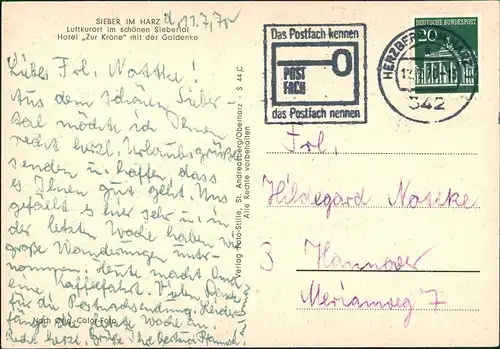 SIEBER IM HARZ
d. 11.7.70
Luftkurort im schönen Siebertal
Hotel „Zur Krone" mit der Goldenke
Liebes Frl. Nottke!
Aus dem schönen Sieber-
tal möchte ich Ihnen
recht herzl. Urlaubsgrüße
senden u. hoffen, dass
es Ihnen gut geht. Uns
gefällt es hier sehr u. in
der letzten Woche haben wir
große Wanderungen unter-
nommen. Heute macht
eine Kaffeefahrt. Vielen Dank
für die Postnachsendung. Leider
fängt die letzte Woche an.
Recht herzl. Grüße Ihr
Nach Orig.-Color-Foto
Verlag Foto-Stille, St. Andreasberg/Oberharz - S 44 C
Alle Rechte vorbehalten
Das Postfach kennen
POST
FACH
das Postfach nennen
HERZBERG
342
DEUTSCHE BUNDESPOST
20
Frl.
Hildegard Nottke
3 Hannover
Merianweg 7